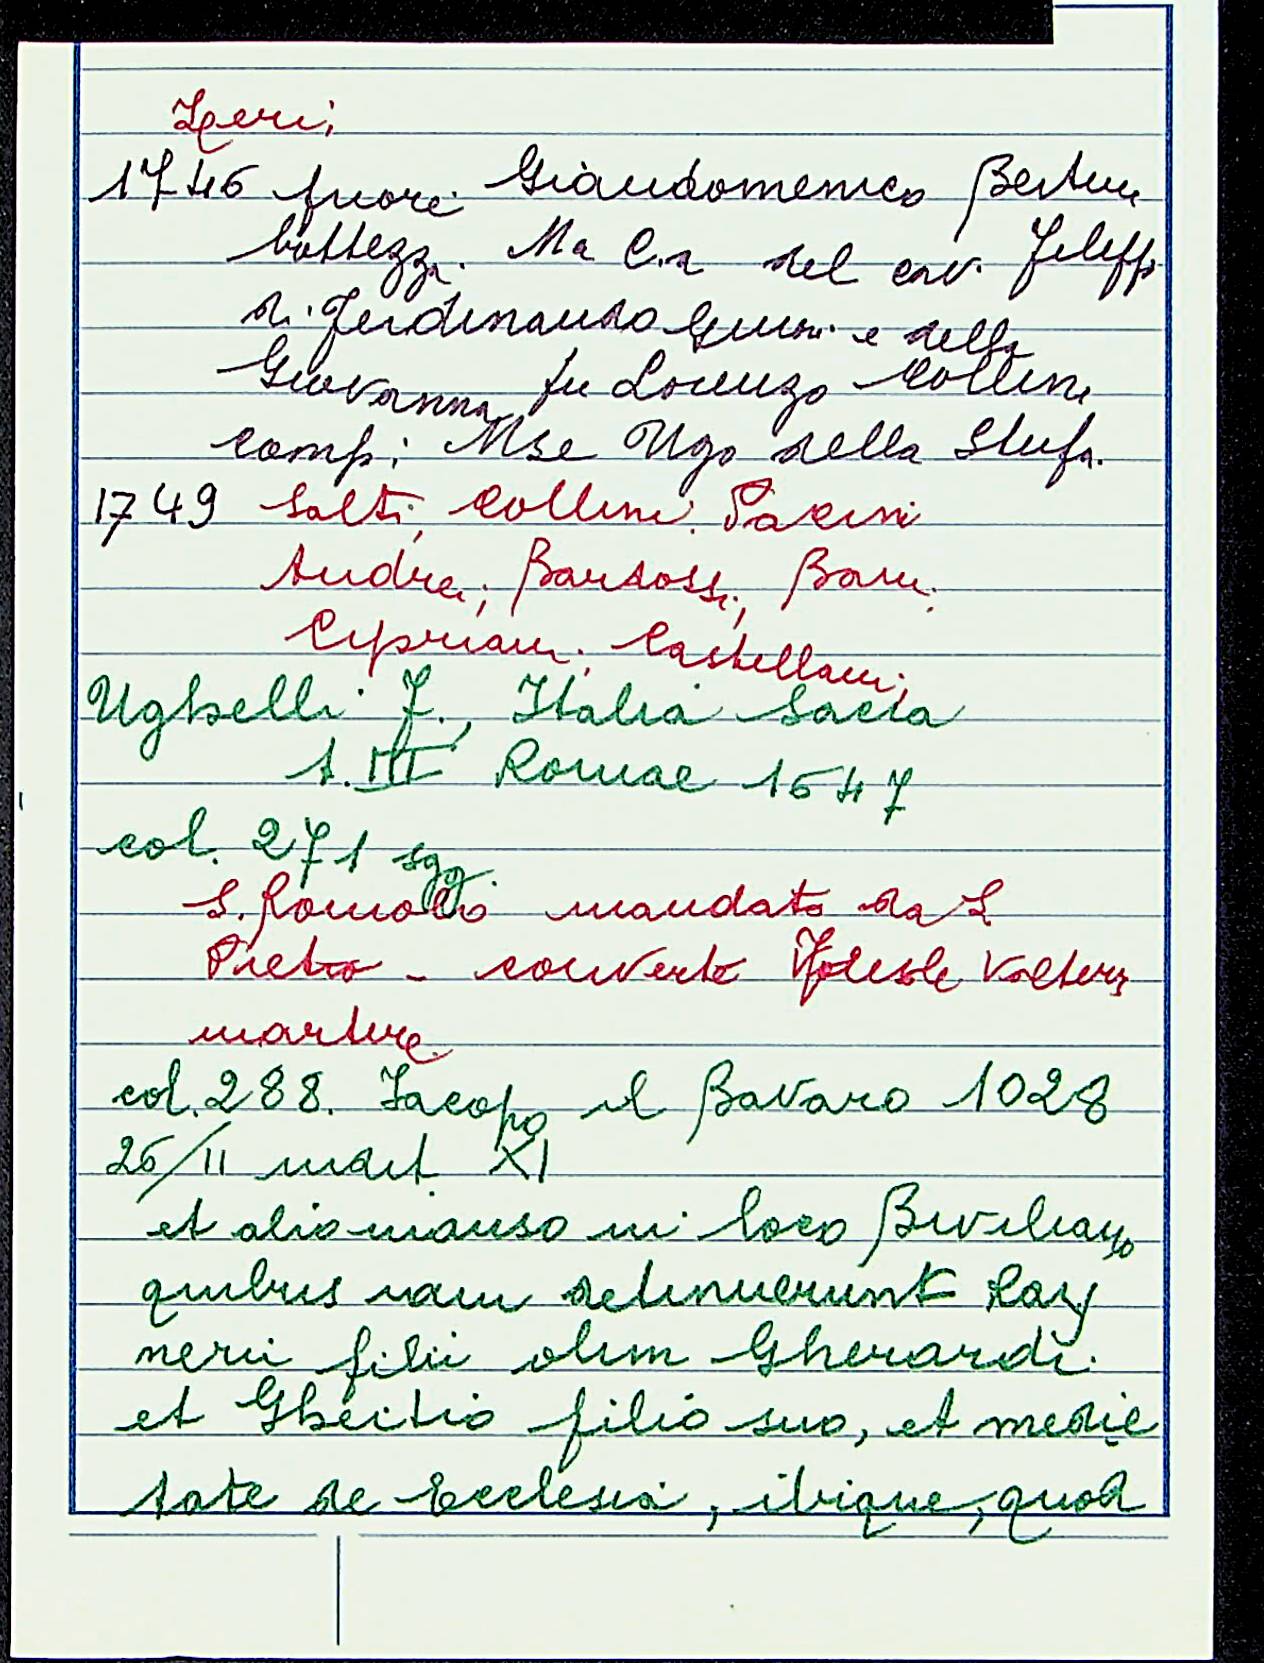 Zeri;
1746 fuori Giandomenico Bertini
battezza. Ma C.a del cav. Filippo
di Ferdinando Guini e della
Giovanna fu Lorenzo Collini
comp: Mse Ugo della Stufa.
1749 Salti, Collini. Pacini
Andrei; Bandossi, Bani;
Cipriani; Castellani;
Ughelli F., Italia Sacra
t. III Romae 1647
col. 271 sgg.
S. Romolo mandato da S.
Pietro - converte Fiesole Volterra
martire
col. 288. Iacopo il Bavaro 1028
26/II indict XI
et alio manso in loco Biviliano
quibus iam detinuerunt Ray
nerii filii olim Gherardi
et Gheitio filio suo, et medie
tate de Ecclesia, ibique, quod